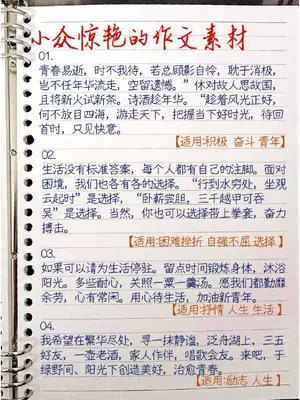 小众惊艳的作文素材
01.
青春易逝,时不我待,若总顾影自怜,耽于消极,
岂不任年华流走,空留遗憾。”休对故人思故国,
且将新火试新茶。诗酒趁年华。“趁着风光正好,
何不放目四海,游走天下,把握当下好时光,待回
首时,只见惬意。
【适用:积极 奋斗 青年】
02.
生活没有标准答案,每个人都有自己的注脚。面对
困境,我们也各有各的选择。“行到水穷处,坐观
云起时”是选择,“卧薪尝胆,三千越甲可吞
吴”是选择。当然,你也可以选择带上拳套,奋力
搏击。
【适用:困难挫折 自强不屈 选择】
03.
如果可以请为生活停驻。留点时间锻炼身体,沐浴
阳光。多些耐心,关照一粟一羹汤。愿我们都勤靡
余劳,心有常闲。用心待生活,加油新青年。
【适用:抒情 人生 生活】
04.
我希望在繁华尽处,寻一抹静谧,泛舟湖上,三五
好友,一壶老酒,家人作伴,唱歌会友。来吧,于
绿野间、阳光下创造美好,治愈青春。
【适用:励志 人生】